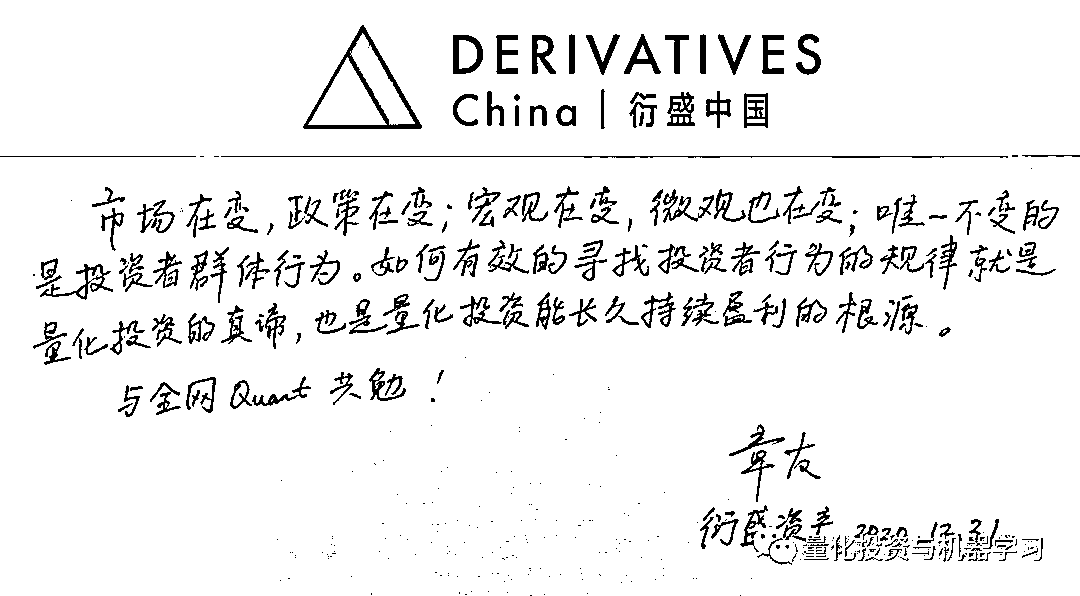 DERIVATIVES
China | 衍盛中国
市场在变，政策在变；宏观在变，微观也在变；唯一不变的
是投资者群体行为。如何有效的寻找投资者行为的规律就是
量化投资的真谛，也是量化投资能长久持续盈利的根源。
与全网Quant共勉！
章友
衍盛资产 2020.12.31
量化投资与机器学习